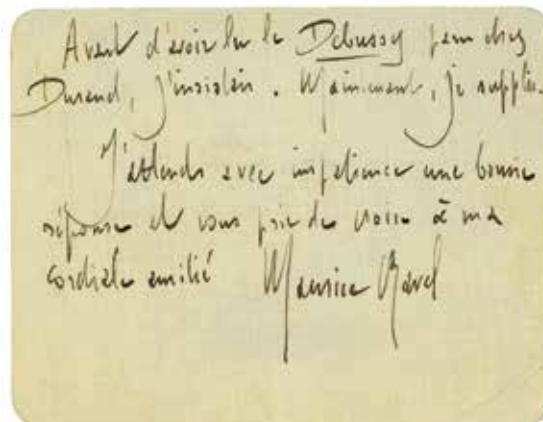 Avant d'avoir lu le Debussy paru chez
Durand, j'insistais. Maintenant, je supplie.
J'attends avec impatience une bonne
réponse et vous prie de croire à ma
cordiale amitié Maurice Ravel